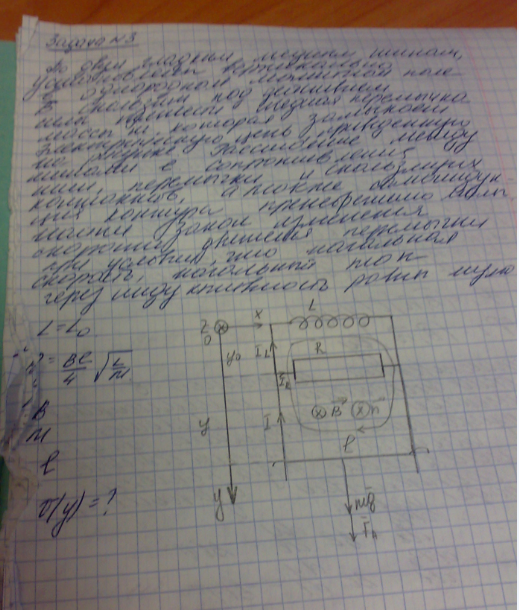 Задача №3
По двум гладким медным шинам,
установленным вертикально
в однородном магнитном поле
B скользит под действием
силы тяжести медная перемычка
массы m, которая замыкает
электрическую цепь приведенную
на рисунке. Расстояние между
шинами l. Сопротивление
шин, перемычки и скользящих
контактов, а также
контура пренебрежимо малы
Найти закон изменения
скорости движения перемычки
при условии, что начальная
скорость, начальный ток
через индуктивность равны нулю
L = L₀
R = Bl/4 √L/m
B
m
l
v(y) = ?
Z
0
X
L
y₀
I_L
R
I_R
B n
I
l
y
y
mg
F